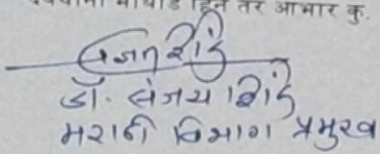 मांधाडे हिने तर आभार कु.
डॉ. संजय शिंदे
मराठी विभाग प्रमुख